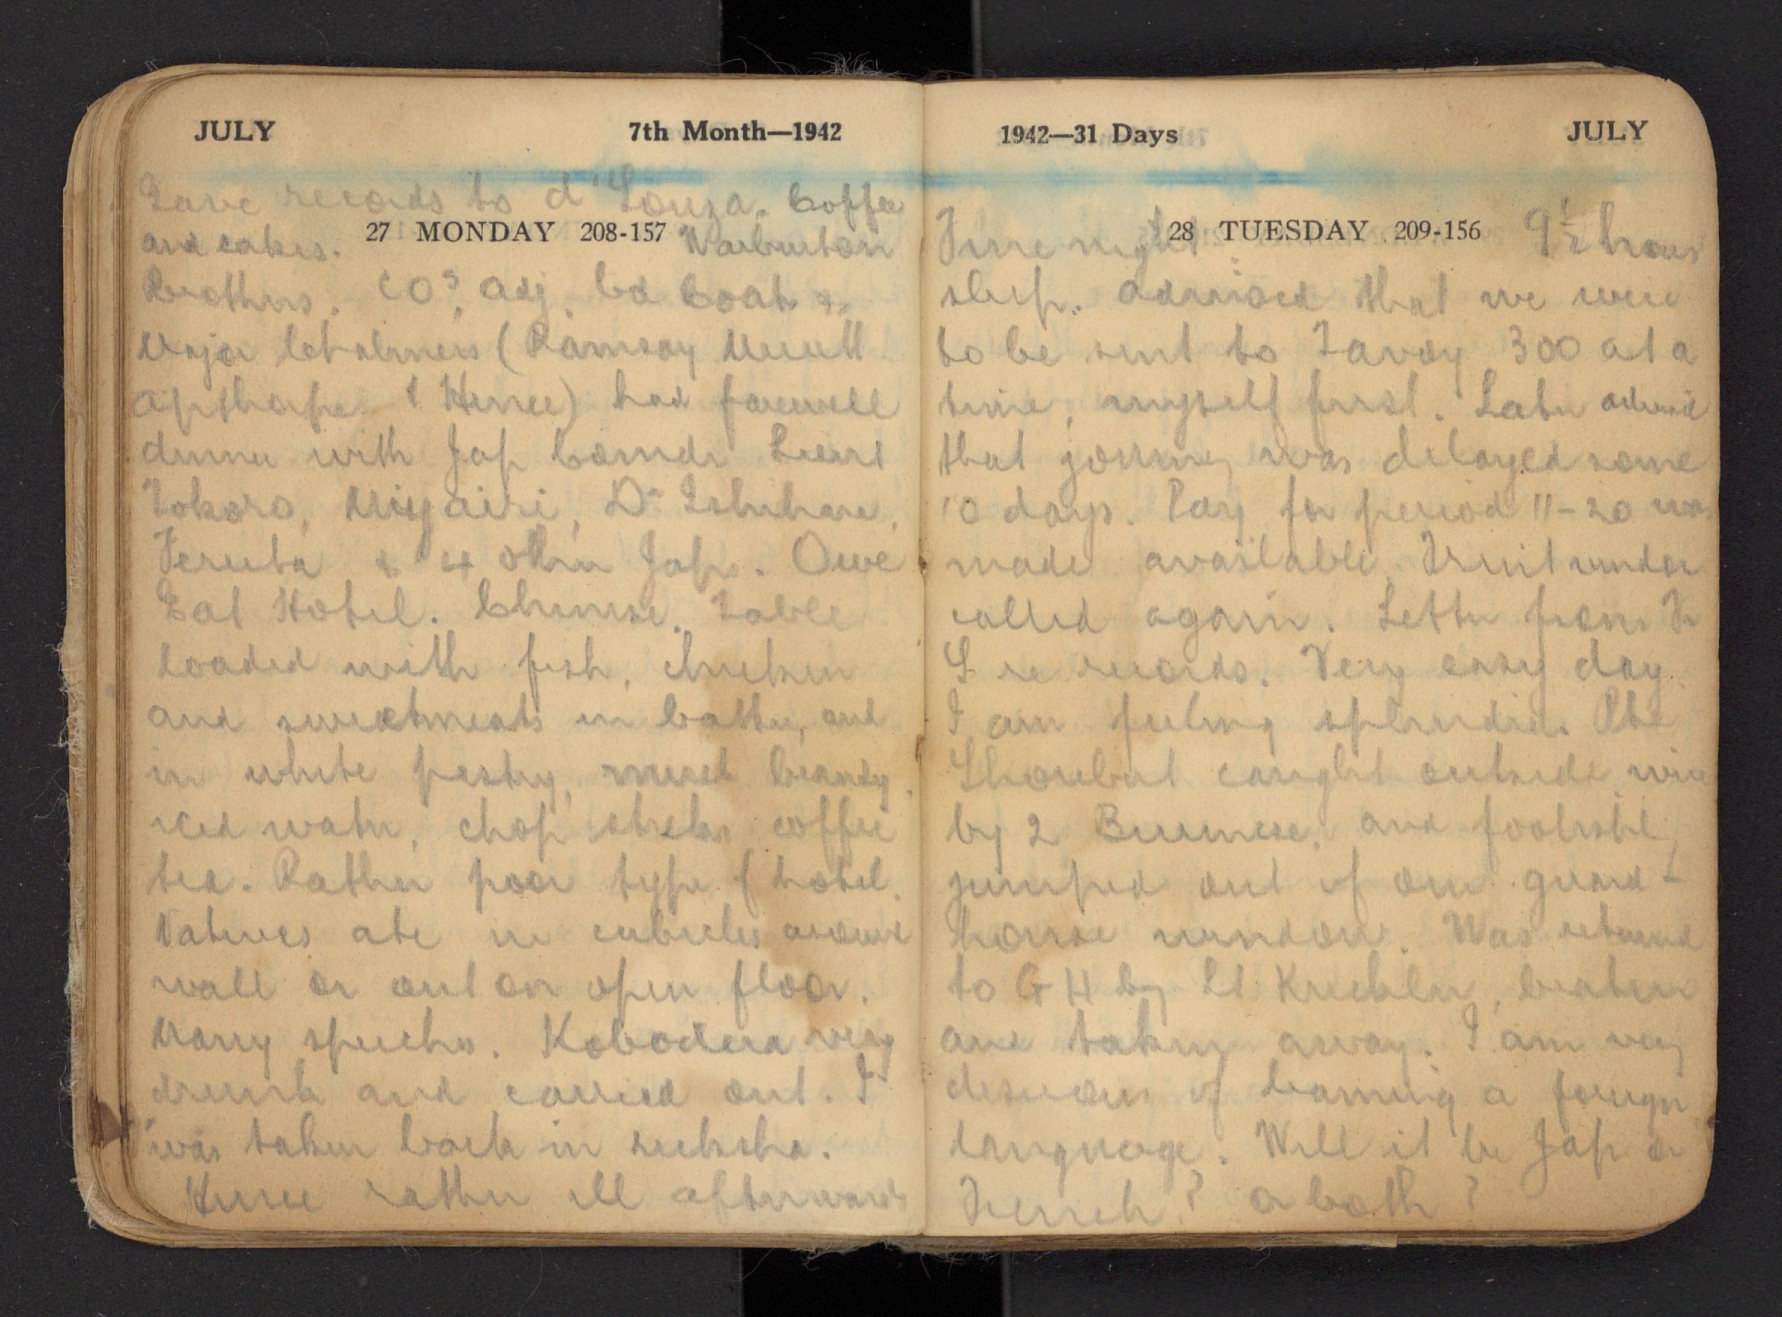 JULY 7th Month—1942
Gave records to d'Souza. Coffee
27 MONDAY 208-157
and cakes. Warburton
Brothers. COs, adj, Coats &
Major Chalmers (Ramsay
Apthorpe & Hence) had farewell
dinner with Jap Comdr Lieut
Tokoro, Miyairi, Dr Ishihara,
Teruta & 4 other Japs. Owe
Eat Hotel. Chinese. Table
loaded with fish, chicken
and sweetmeats in batter, and
in white pastry, brandy,
iced water, chop sticks coffee
tea. Rather poor type of hotel.
Natives ate in cubicles around
wall or out on open floor.
Many speeches. Kobodera very
drunk and carried out. I
was taken back in ricksha.
Hence rather ill afterwards
1942—31 Days JULY
28 TUESDAY 209-156
Fine night 9½ hours
sleep. Advised that we were
to be sent to Tavoy 300 at a
time, myself first. Later advised
that journey was delayed some
10 days. Pay for period 11-20 was
made available. Fruit vendor
called again. Letter from Fr
S re records. Very easy day.
I am feeling splendid. Pte
caught outside wire
by 2 Burmese, and foolishly
jumped out of our guard-
house window. Was returned
to G H by Lt, beaten
and taken away. I am very
desirous of learning a foreign
language. Will it be Jap or
French? or both?